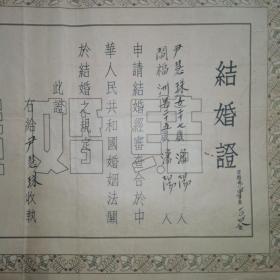 結婚證
尹慧珠 女 二十七歲 瀋陽 人
關福洲 男 三十五歲 瀋陽 人
申請結婚經審查合於中
華人民共和國婚姻法關
於結婚之規定
此證
右給尹慧珠收執
結婚證